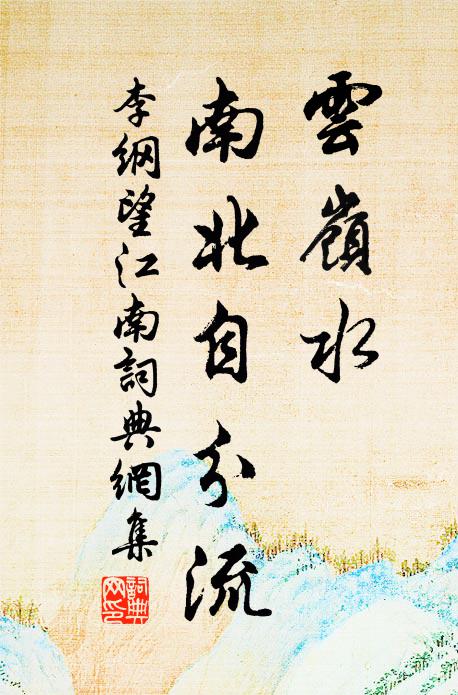 雲嶺水
南北自分流
李綱望江南詞典網集